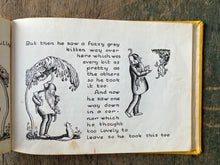 But then he saw a fuzzy grey
kitten way over
here which was
every bit as
pretty as
the others
so he took
it too.
And now
he saw one
way down
in a cor-
ner which
he thought
too lovely to
leave so he took this too